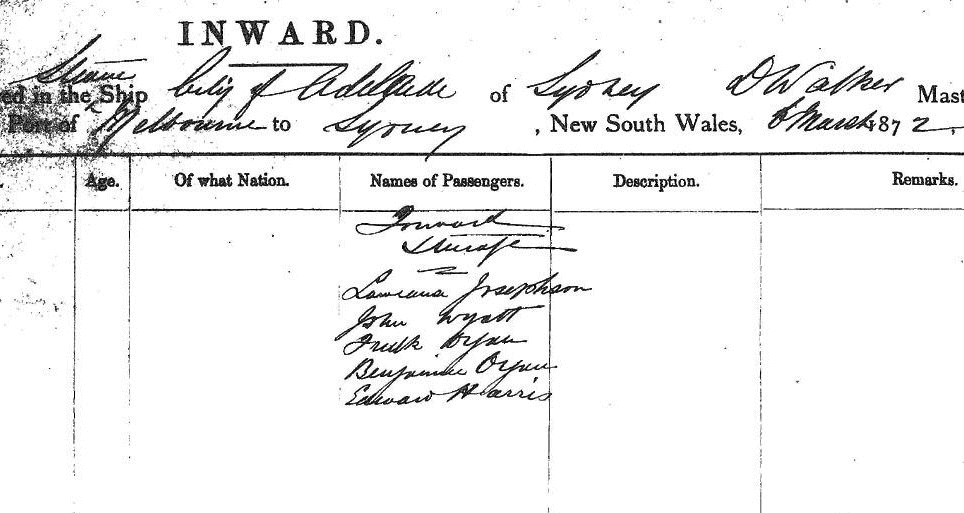 INWARD.
Steamer
ed in the Ship City of Adelaide of Sydney D Walker Mast
Port of Melbourne to Sydney, New South Wales, 6 March 1872.
Age. Of what Nation. Names of Passengers. Description. Remarks.
Forward
Steerage
Josephson
John Wyatt
Fredk
Benjamin
Edward Harris